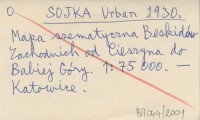 O SOJKA Urban 1930.
Mapa szematyczna Beskidów
Zachodnich od Cieszyna do
Babiej Góry. 1:75 000. —
Katowice.